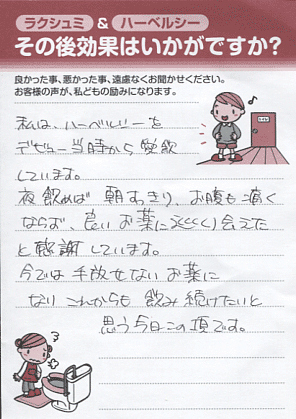 ラクシュミ & ハーベルシー
その後効果はいかがですか?
良かった事、悪かった事、遠慮なくお聞かせください。
お客様の声が、私どもの励みになります。
私は、ハーベルシーを
デビュー当時から愛飲
しています。
夜飲めば 朝すっきり、お腹も痛く
ならず、良いお薬にめぐり会えた
と感謝しています。
今では手放せないお薬に
なり これからも 飲み続けたいと
思う今日この頃です。